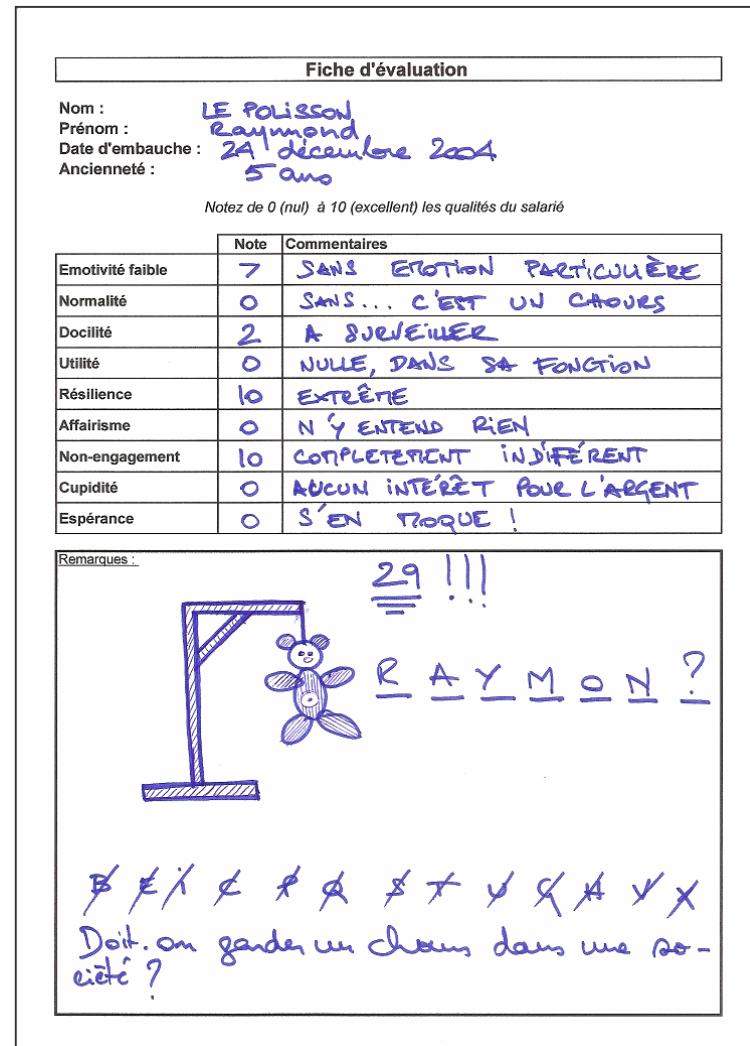 Fiche d'évaluation
Nom : LE POLISSON
Prénom : Raymond
Date d'embauche : 24 décembre 2004
Ancienneté : 5 ans
Notez de 0 (nul) à 10 (excellent) les qualités du salarié
Note Commentaires
Emotivité faible 7 SANS EMOTION PARTICULIÈRE
Normalité 0 SANS... C'EST UN CHOURS
Docilité 2 A SURVEILLER
Utilité 0 NULLE, DANS SA FONCTION
Résilience 10 EXTRÊME
Affairisme 0 N'Y ENTEND RIEN
Non-engagement 10 COMPLETEMENT INDIFÉRENT
Cupidité 0 AUCUN INTÉRÊT POUR L'ARGENT
Espérance 0 S'EN MOQUE !
Remarques :
29 !!!
R A Y M O N ?
B E I C P Q S T U G A V X
Doit-on garder un chours dans une so-
ciété ?